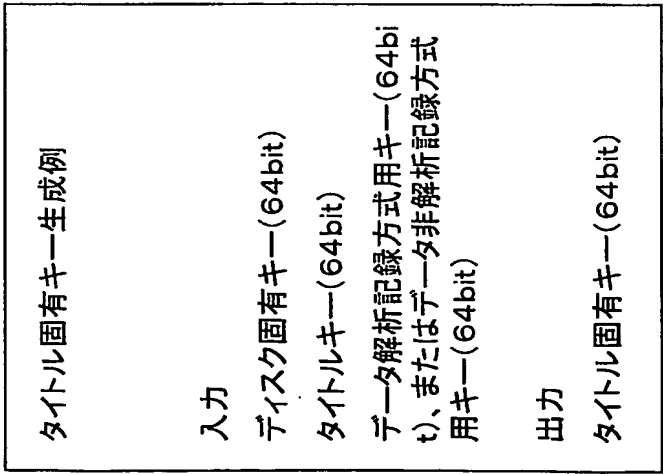 タイトル固有キー生成例
入力
ディスク固有キー(64bit)
タイトルキー(64bit)
データ解析記録方式用キー(64bi
t)、またはデータ非解析記録方式
用キー(64bit)
出力
タイトル固有キー(64bit)